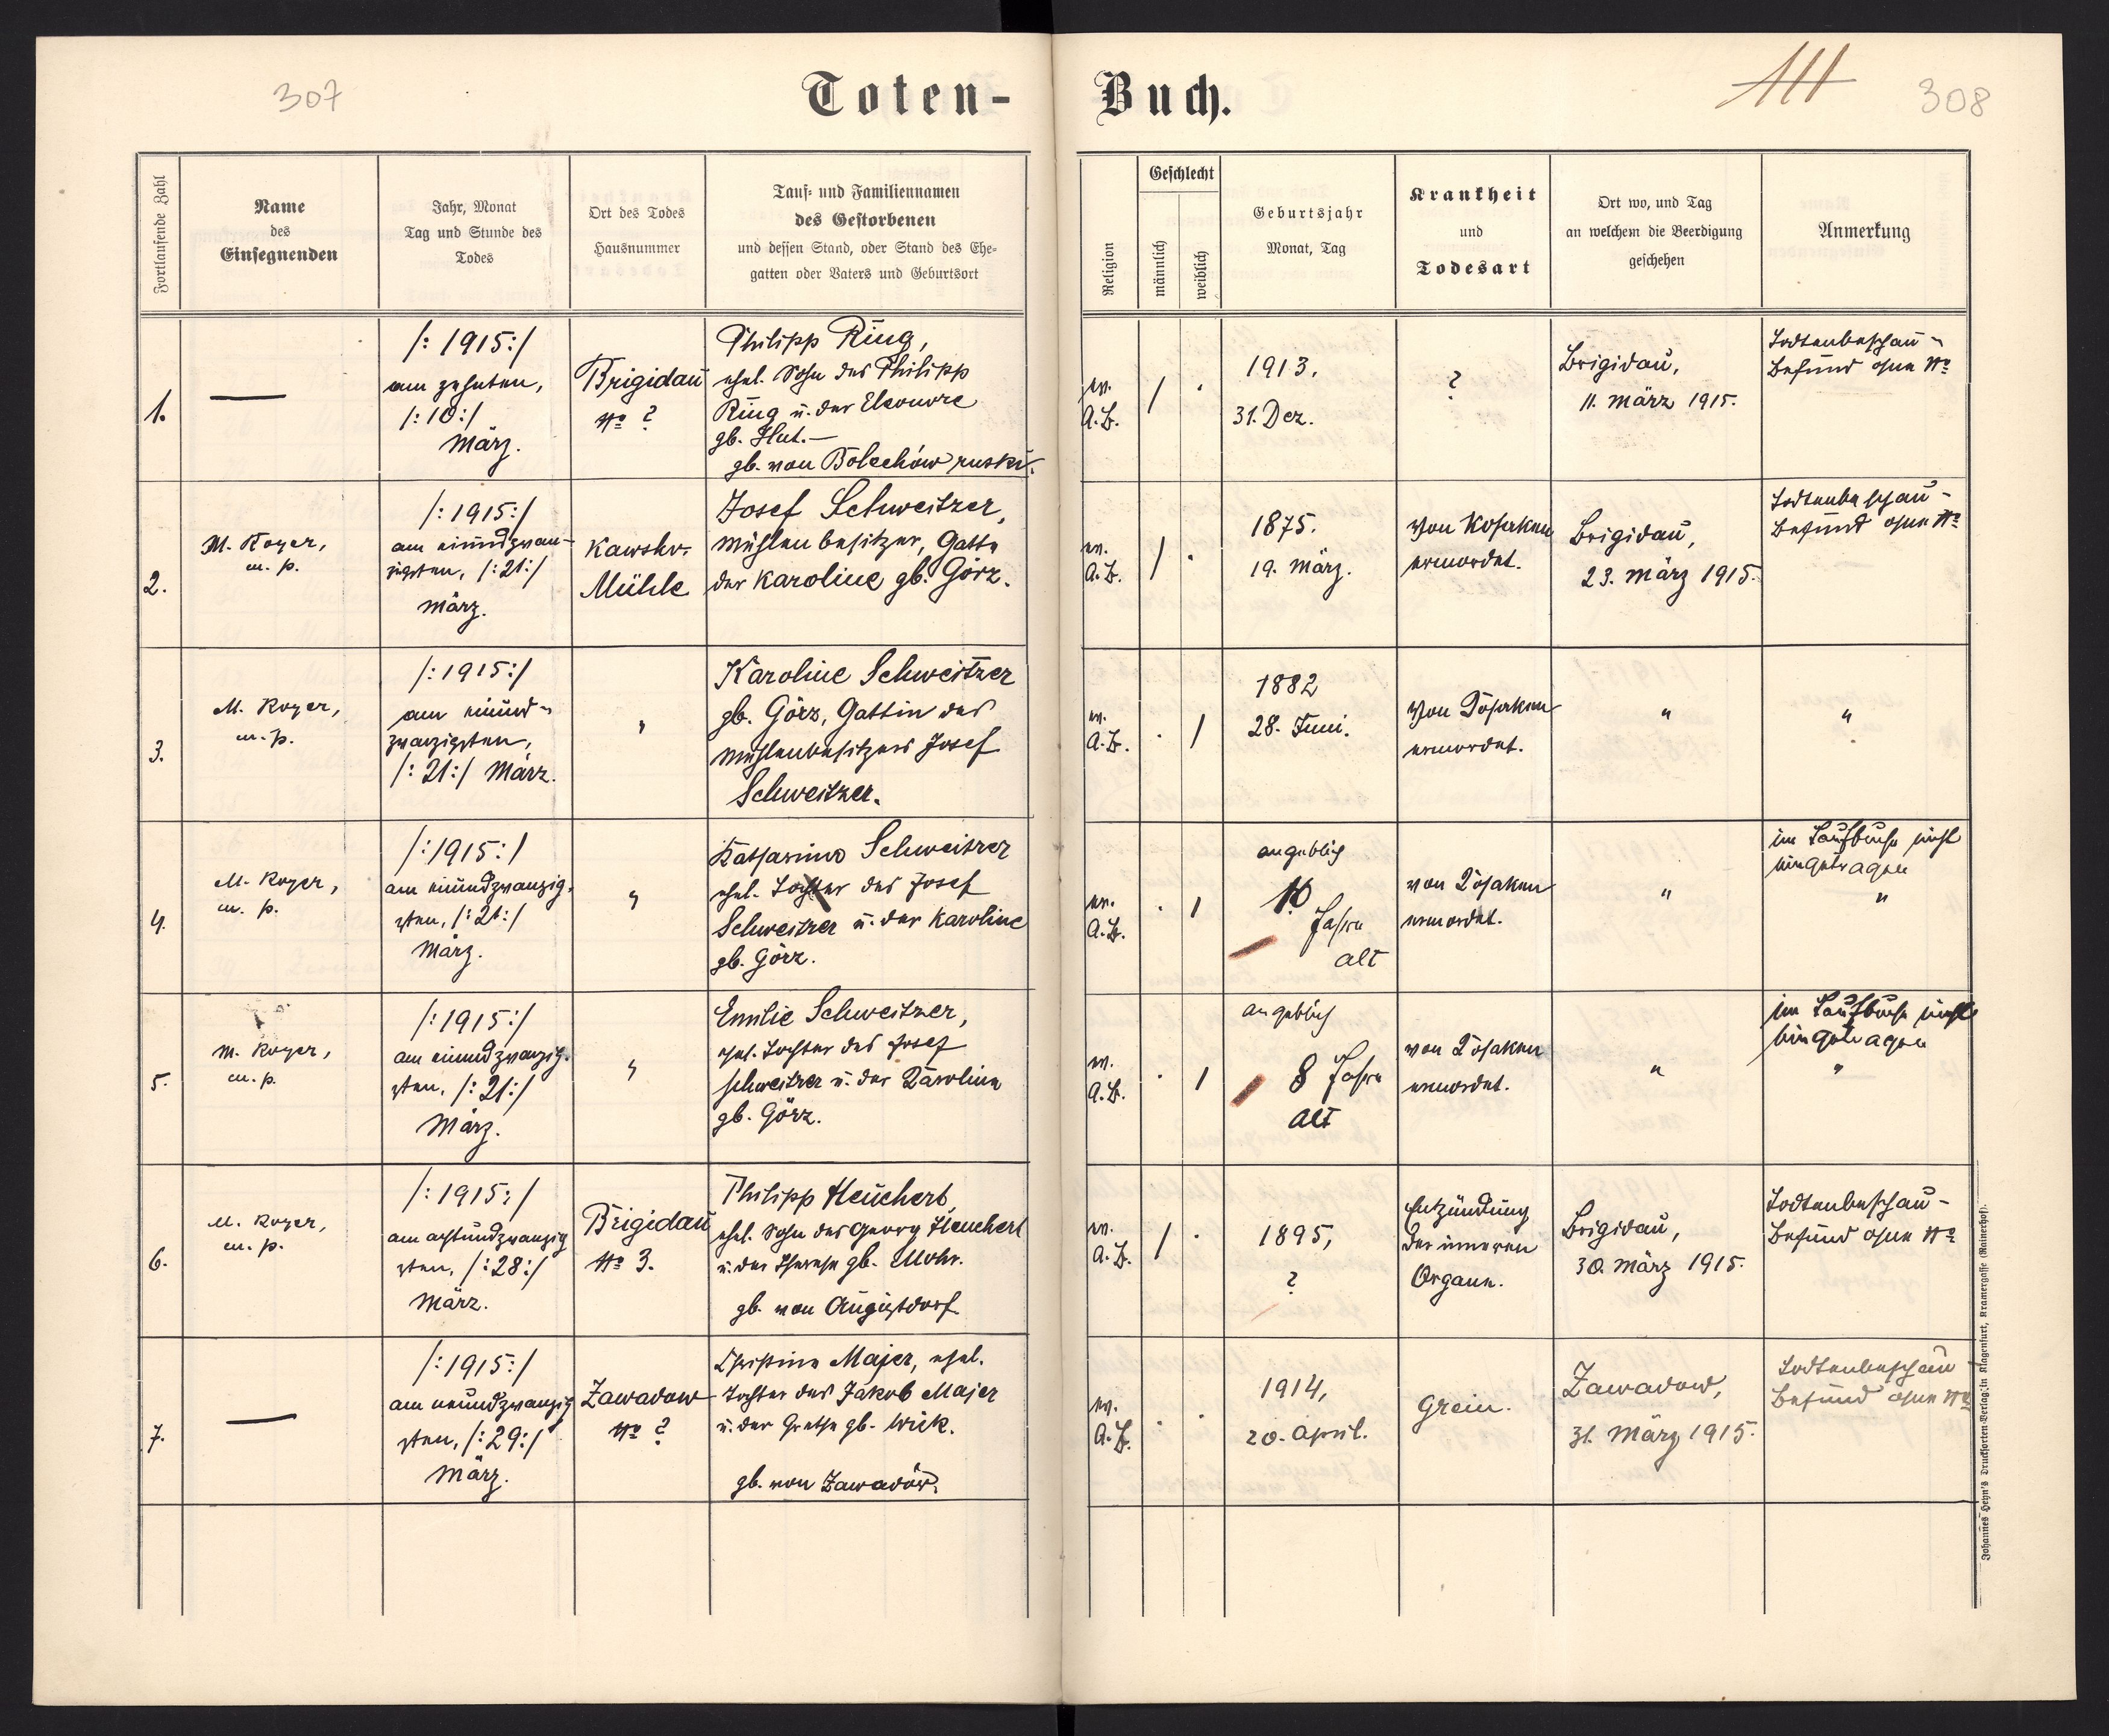 307
Toten-
Buch.
111
308
Fortlaufende Zahl
Name
des
Einsegnenden
Jahr, Monat
Tag und Stunde des
Todes
Ort des Todes
Hausnummer
Tauf- und Familiennamen
des Gestorbenen
und dessen Stand, oder Stand des Ehe-
gatten oder Vaters und Geburtsort
Religion
Geschlecht
männlich
weiblich
Geburtsjahr
Monat, Tag
Krankheit
und
Todesart
Ort wo, und Tag
an welchem die Beerdigung
geschehen
Anmerkung
1.
—
/: 1915:/
am zehnten,
/:10:/
März.
Brigidau
No ?
Philipp Ring,
ehel. Sohn des Philipp
Ring u. der Eleonore
gb. Hut.—
gb. von Bolechów ruski.
ev.
A.B.
/
.
1913.
31. Dez.
?
Brigidau,
11. März 1915.
Todtenbeschau-
Befund ohne No
2.
M. Royer,
m. p.
/:1915:/
am einundzwan-
zigsten, /:21:/
März.
Mühle
Josef Schweitzer,
Mühlenbesitzer, Gatte
der Karoline gb. Görz.
ev.
A.B.
/
.
1875.
19. März.
Von Kosaken
ermordet.
Brigidau,
23. März 1915.
Todtenbeschau-
Befund ohne No
3.
M. Royer,
m. p.
/:1915:/
am einund-
zwanzigsten,
/:21:/ März.
"
Karoline Schweitzer
gb. Görz, Gattin des
Mühlenbesitzers Josef
Schweitzer.
ev.
A.B.
.
/
1882
28. Juni.
Von Kosaken
ermordet.
"
"
4.
M. Royer,
m. p.
/:1915:/
am einundzwanzig-
sten, /:21:/
März.
"
Katharina Schweitzer
ehel. Tochter des Josef
Schweitzer u. der Karoline
gb. Görz.
ev.
A.B.
.
/
angeblich
10
Jahre
alt
von Kosaken
ermordet.
"
im Taufbuche nicht
eingetragen
"
5.
M. Royer,
m. p.
/:1915:/
am einundzwanzig-
sten, /:21:/
März.
"
Emilie Schweitzer,
ehel. Tochter des Josef
Schweitzer u. der Karoline
gb. Görz.
ev.
A.B.
.
/
angeblich
8 Jahre
alt
von Kosaken
ermordet.
"
im Taufbuche nicht
eingetragen
"
6.
M. Royer,
m. p.
/:1915:/
am achtundzwanzig
sten, /:28:/
März.
Brigidau
No 3.
Philipp Heuchert,
ehel. Sohn des Georg Heuchert
u. der Therese gb. Mohr.
gb. von Augustdorf.
ev.
A.B.
/
.
1895,
?
Entzündung
der inneren
Organe.
Brigidau,
30. März 1915.
Todtenbeschau-
Befund ohne No
7.
—
/:1915:/
am neundzwanzig
sten, /:29:/
März.
Zawadow
No ?
Christine Majer, ehel.
Tochter des Jakob Majer
u. der Grethe gb. Wick.
gb. von Zawadów.
ev.
A.B.
.
.
1914,
20. April.
Zawadow,
31. März 1915.
Todtenbeschau-
Befund ohne No
Johannes Heyn's Drucksorten-Verlag in Klagenfurt, Kramergasse (Rainerhof).